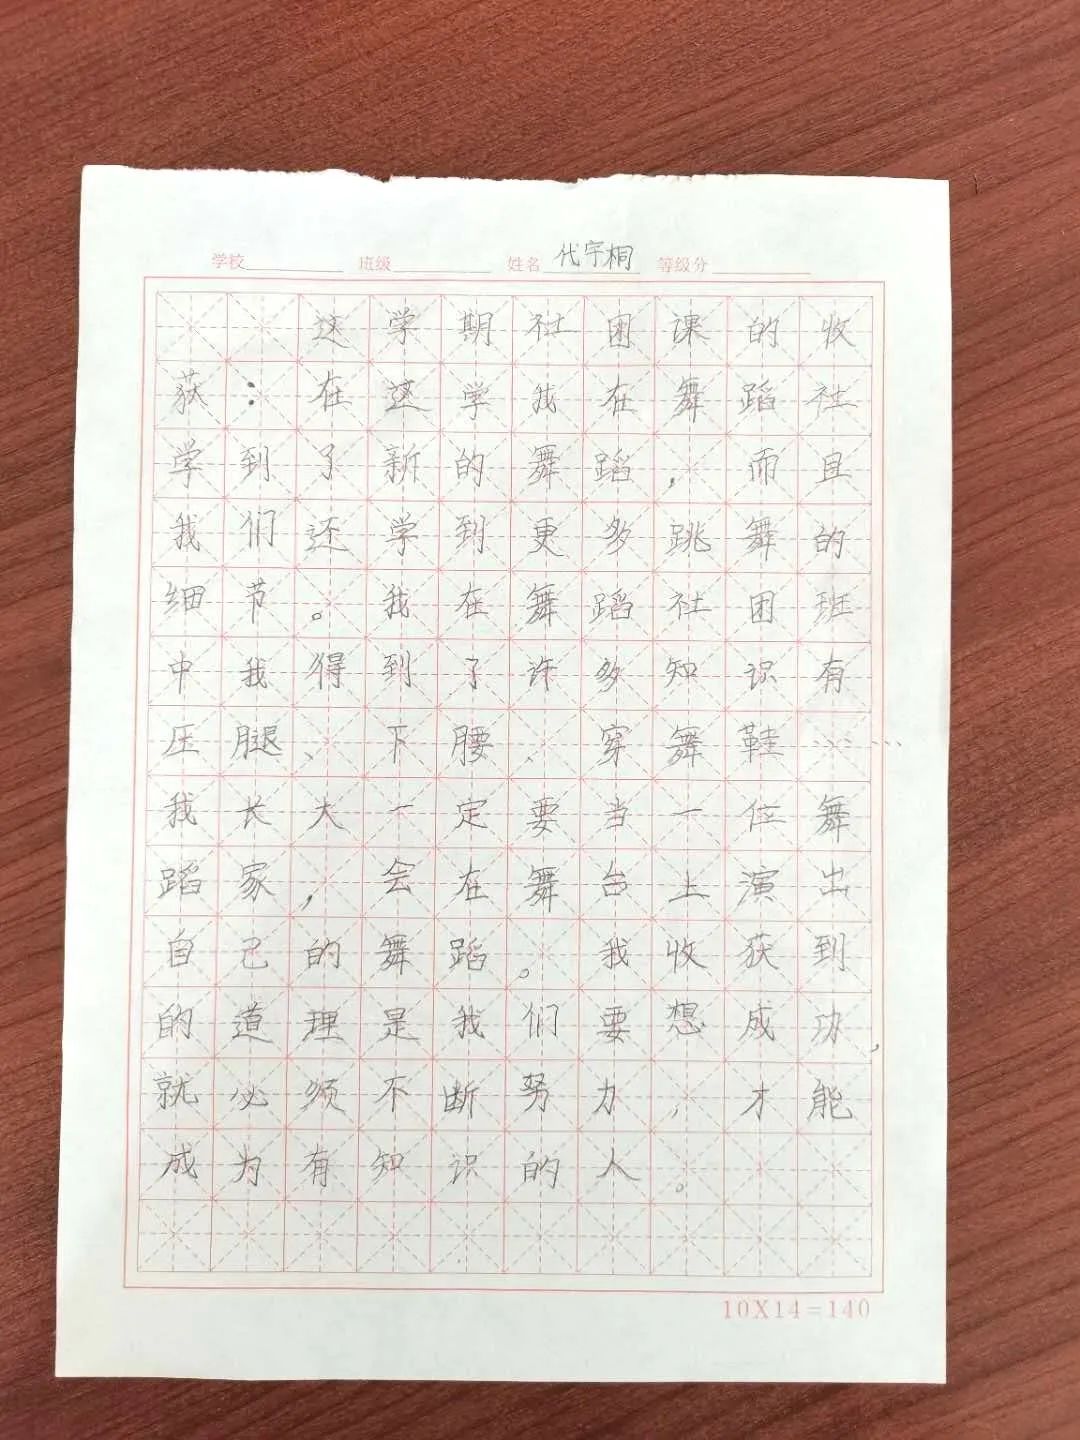 学校 班级 姓名 代宇桐 等级分
这学期社团课的收
获：在这学我在舞蹈社
学到了新的舞蹈，而且
我们还学到更多跳舞的
细节。我在舞蹈社团班
中我得到了许多知识有
压腿、下腰、穿舞鞋……
我长大一定要当一位舞
蹈家，会在舞台上演出
自己的舞蹈。我收获到
的道理是我们要想成功，
就必须不断努力，才能
成为有知识的人。
10X14=140